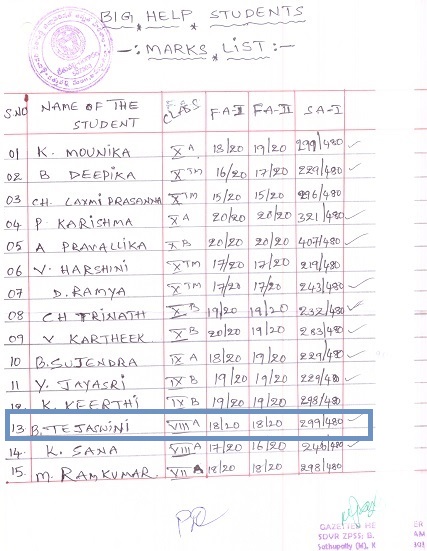 BIG HELP STUDENTS
-: MARKS LIST :-
S.NO NAME OF THE STUDENT CLASS FA-I FA-II SA-I
01 K. MOUNIKA X A 18/20 19/20 299/480
02 B DEEPIKA X TM 16/20 17/20 229/480
03 CH LAXMI PRASANNA X TM 15/20 15/20 296/480
04 P KARISHMA X A 20/20 20/20 321/480
05 A PRAVALLIKA X B 20/20 20/20 407/480
06 V. HARSHINI X TM 17/20 17/20 219/480
07 D. RAMYA X TM 17/20 17/20 243/480
08 CH TRINATH X B 19/20 19/20 232/480
09 V KARTHEEK X B 20/20 19/20 283/480
10 B. SUJENDRA IX A 18/20 19/20 229/480
11 Y. JAYASRI IX B 19/20 19/20 229/480
12 K. KEERTHI IX B 19/20 19/20 298/480
13. B. TEJASWINI VIII A 18/20 18/20 299/480
14. K. SANA VIII A 17/20 16/20 248/480
15. M. RAMKUMAR VII A 18/20 18/20 298/480
GAZETTED HE
SDVR ZPSS: B.
Sathupally (M), K